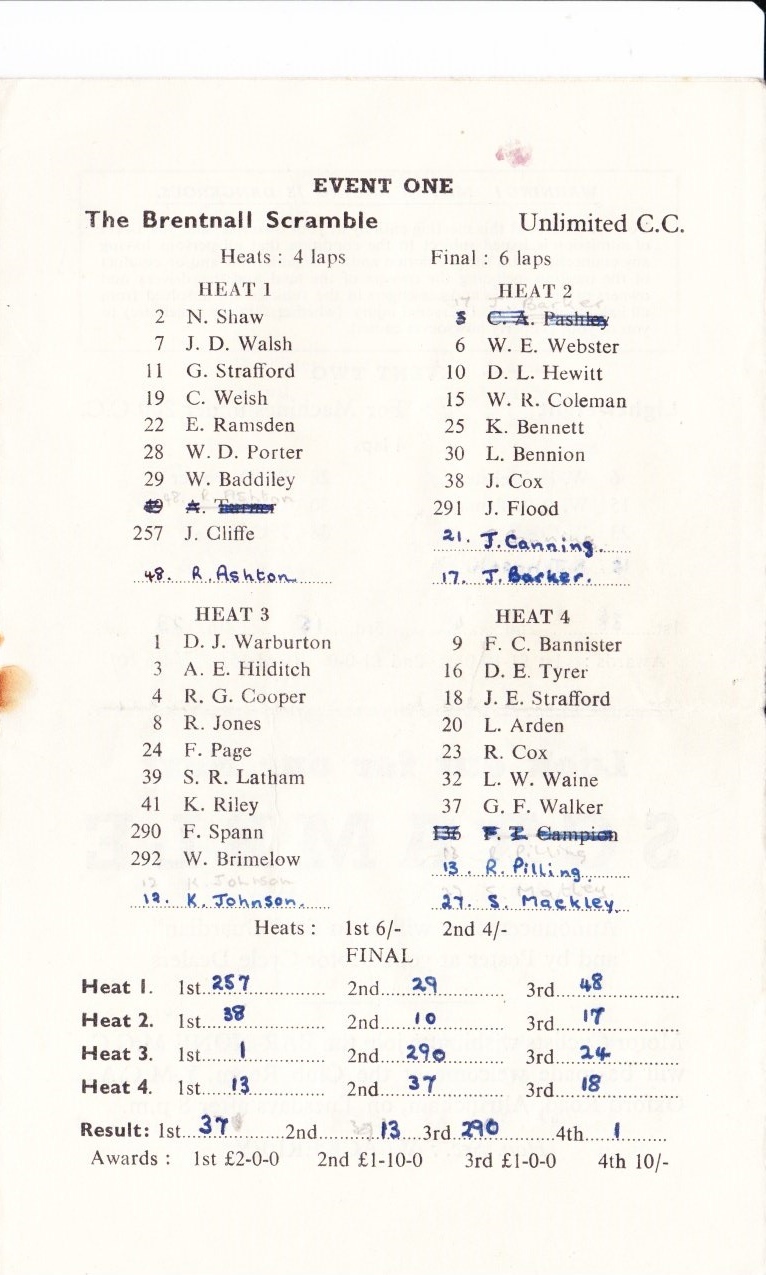 EVENT ONE
The Brentnall Scramble Unlimited C.C.
Heats : 4 laps Final : 6 laps
HEAT 1
2 N. Shaw
7 J. D. Walsh
11 G. Strafford
19 C. Welsh
22 E. Ramsden
28 W. D. Porter
29 W. Baddiley
49 A. Turner
257 J. Cliffe
48. R. Ashton
HEAT 2
17 J. Barker
5 C. A. Pashley
6 W. E. Webster
10 D. L. Hewitt
15 W. R. Coleman
25 K. Bennett
30 L. Bennion
38 J. Cox
291 J. Flood
21. J. Canning.
17. J. Barker.
HEAT 3
1 D. J. Warburton
3 A. E. Hilditch
4 R. G. Cooper
8 R. Jones
24 F. Page
39 S. R. Latham
41 K. Riley
290 F. Spann
292 W. Brimelow
12. K. Johnson.
HEAT 4
9 F. C. Bannister
16 D. E. Tyrer
18 J. E. Strafford
20 L. Arden
23 R. Cox
32 L. W. Waine
37 G. F. Walker
136 F. I. Campion
13. R. Pilling.
27. S. Mackley.
Heats : 1st 6/- 2nd 4/-
FINAL
Heat 1. 1st 257 2nd 29 3rd 48
Heat 2. 1st 38 2nd 10 3rd 17
Heat 3. 1st 1 2nd 290 3rd 24
Heat 4. 1st 13 2nd 37 3rd 18
Result: 1st 37 2nd 13 3rd 290 4th 1
Awards : 1st £2-0-0 2nd £1-10-0 3rd £1-0-0 4th 10/-